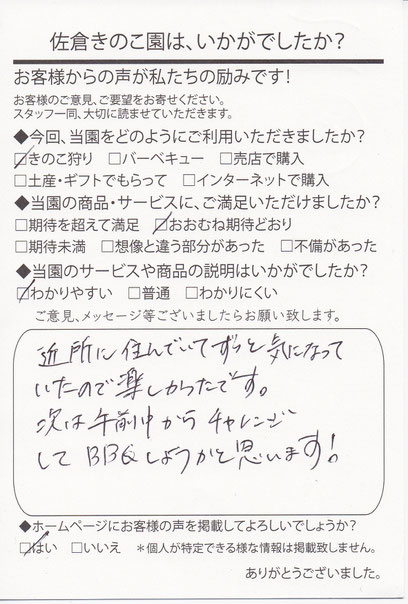 佐倉きのこ園は、いかがでしたか？
お客様からの声が私たちの励みです！
お客様のご意見、ご要望をお寄せください。
スタッフ一同、大切に読ませていただきます。
◆今回、当園をどのようにご利用いただきましたか？
☑きのこ狩り □バーベキュー □売店で購入
□土産・ギフトでもらって □インターネットで購入
◆当園の商品・サービスに、ご満足いただけましたか？
□期待を超えて満足 ☑おおむね期待どおり
□期待未満 □想像と違う部分があった □不備があった
◆当園のサービスや商品の説明はいかがでしたか？
☑わかりやすい □普通 □わかりにくい
ご意見、メッセージ等ございましたらお願い致します。
近所に住んでいてずっと気になって
いたので楽しかったです。
次は午前中からチャレンジ
してBBQしようかと思います！
◆ホームページにお客様の声を掲載してよろしいでしょうか？
☑はい □いいえ ＊個人が特定できる様な情報は掲載致しません。
ありがとうございました。